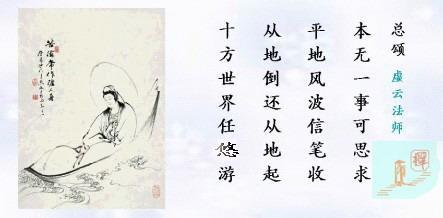 总颂 虚云法师
本无一事可思求
平地风波信笔收
从地倒还从地起
十方世界任悠游
苦海常作度人舟